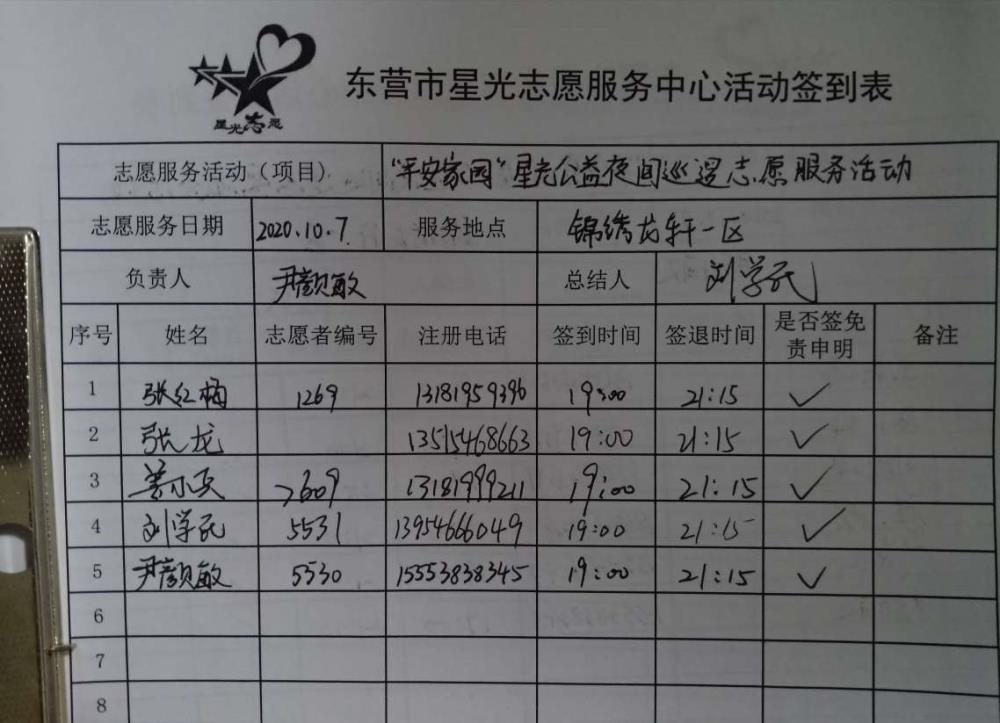 星光志愿
东营市星光志愿服务中心活动签到表
志愿服务活动（项目） "平安家园"星光公益夜间巡逻志愿服务活动
志愿服务日期 2020.10.7. 服务地点 锦绣 轩一区
负责人 尹颜敏 总结人 刘学
序号 姓名 志愿者编号 注册电话 签到时间 签退时间 是否签免责申明 备注
1 张红梅 1269 13181959396 19:00 21:15 ✓
2 张龙 13515468663 19:00 21:15 ✓
3 姜小 2609 13181999211 19:00 21:15 ✓
4 刘学 5531 13954666049 19:00 21:15 ✓
5 尹颜敏 5530 15553838345 19:00 21:15 ✓
6
7
8